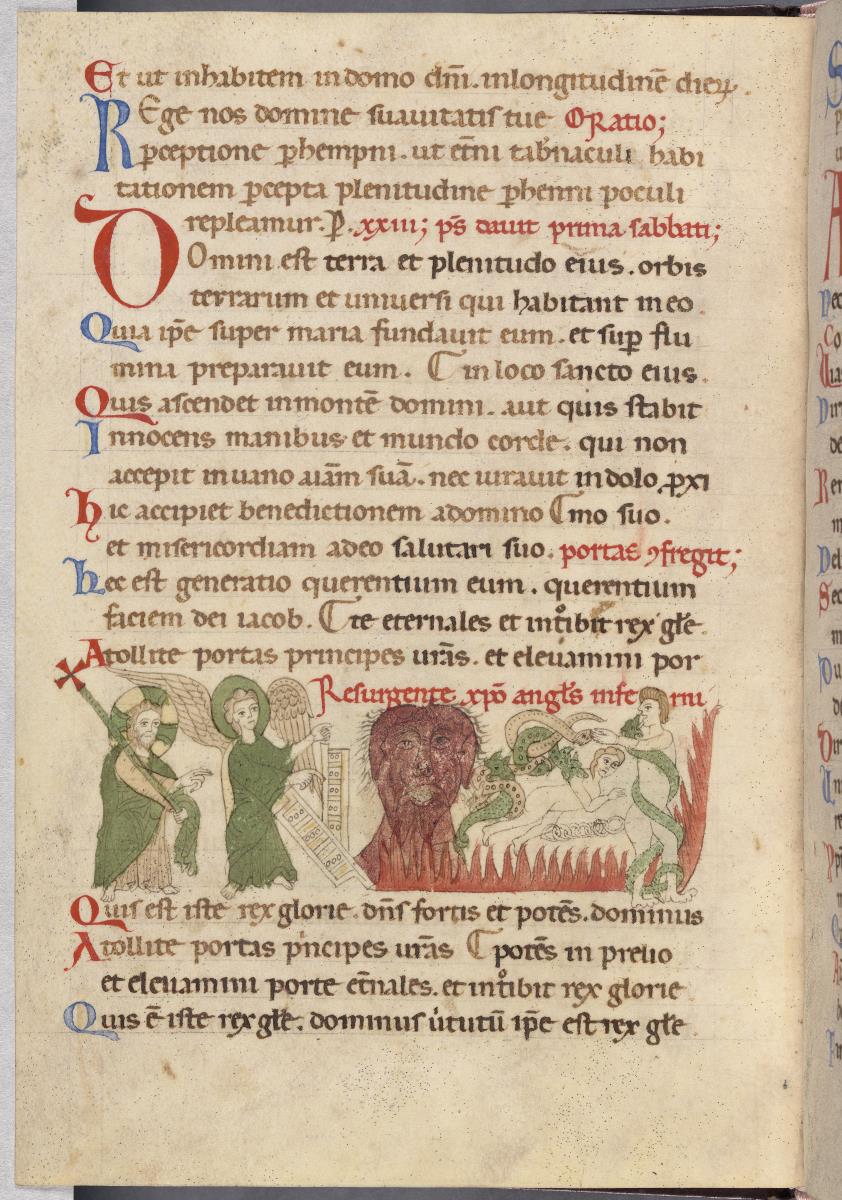 Et ut inhabitem in domo dñi. in longitudinē dieꝝ.
REge nos domine suauitatis tue ORatio;
ꝑceptione ꝑhempni. ut et̄ni tab̄naculi habi
tationem ꝑcepta plenitudine ꝑhenni poculi
repleamur. P. xxiii; ps̄ dauit prima sabbati;
DOmini est terra et plenitudo eius. orbis
terrarum et uniuersi qui habitant in eo.
Quia ip̄e super maria fundauit eum. et suꝑ flu
mina preparauit eum. in loco sancto eius.
Quis ascendet in montē domini. aut quis stabit
Innocens manibus et mundo corde. qui non
accepit in uano aīam suā. nec iurauit in dolo ꝓxi
hic accipiet benedictionem a domino mo suo.
et misericordiam a deo salutari suo. portas ꝯfregit;
hec est generatio querentium eum. querentium
faciem dei iacob. te eternales et int͛ibit rex głe.
Atollite portas principes ur̄as. et eleuamini por
Resurgente xp̄o angl̄s inferni
Quis est iste rex glorie. dn̄s fortis et potēs. dominus
Atollite portas p͛ncipes ur̄as potēs in prelio
et eleuamini porte et̄nales. et int͛ibit rex glorie
Quis ē iste rex głe. dominus u͛tutū ip̄e est rex głe